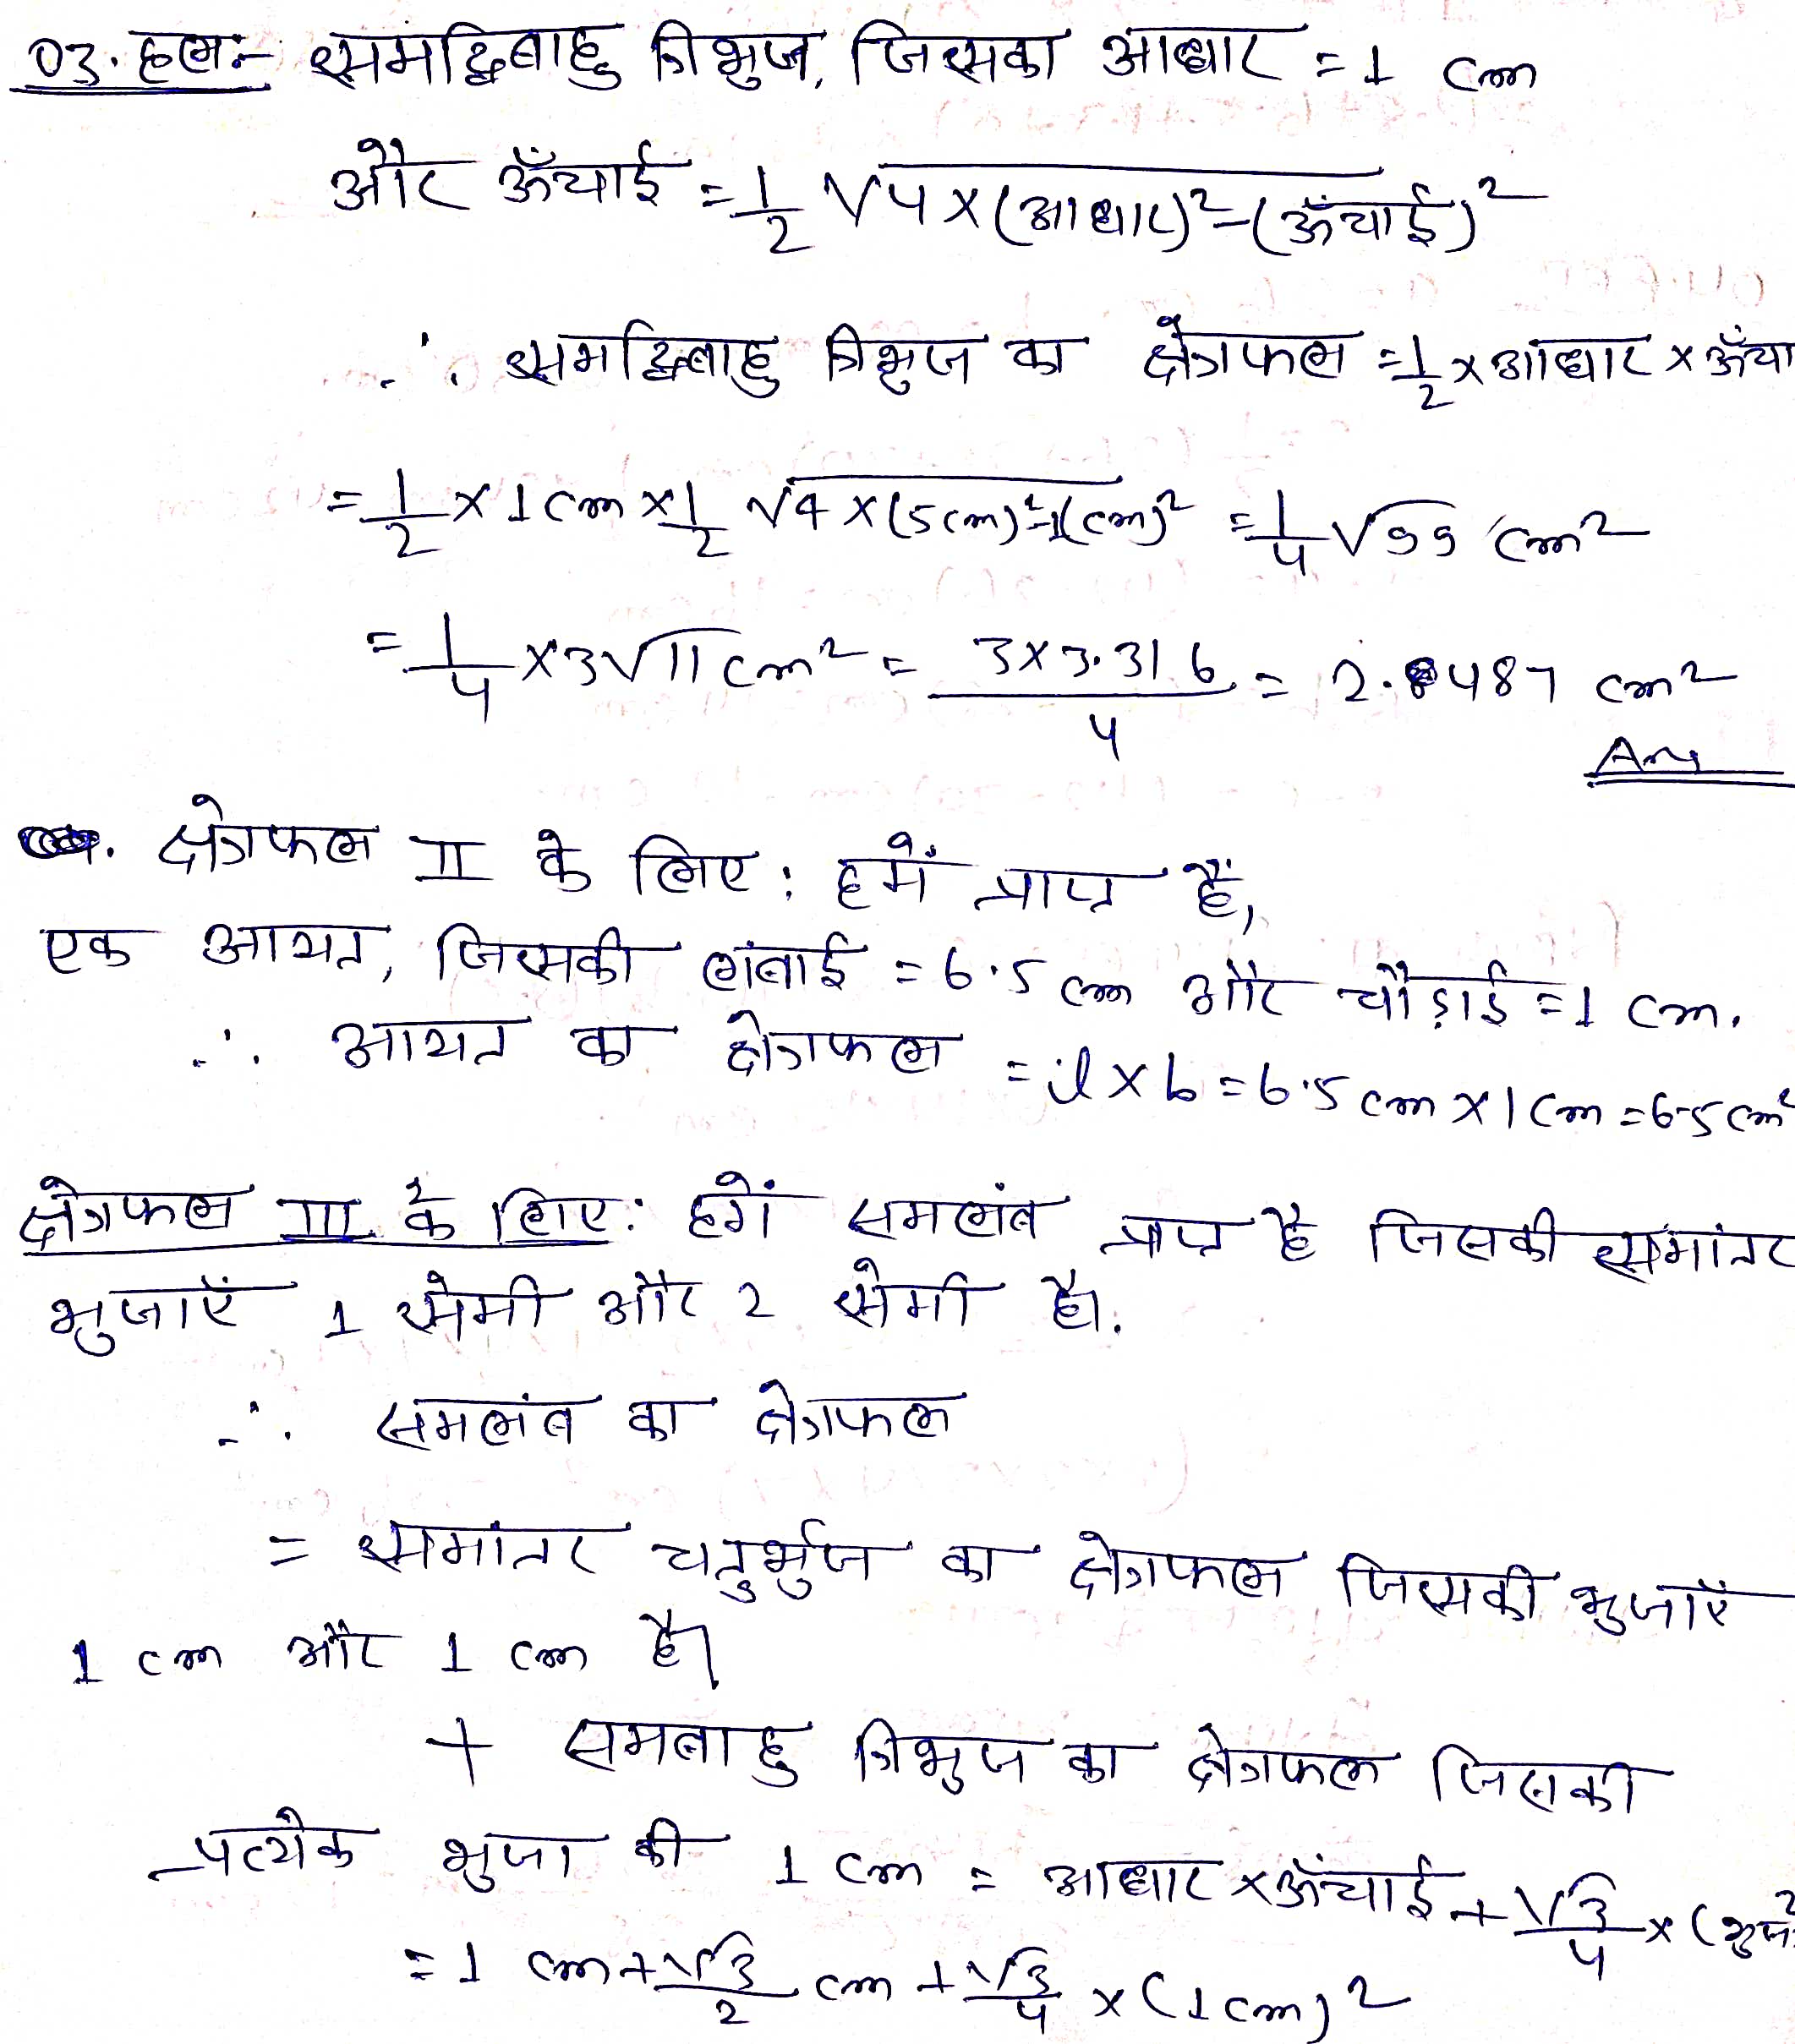 03. हल:- समद्विबाहु त्रिभुज, जिसका आधार = 1 cm
और ऊँचाई = 1/2 √4 × (आधार)² - (ऊँचाई)²
∴ समद्विबाहु त्रिभुज का क्षेत्रफल = 1/2 × आधार × ऊँचा
= 1/2 × 1 cm × 1/2 √4 × (5 cm)² - 1(cm)² = 1/4 √99 cm²
= 1/4 × 3√11 cm² = 3 × 3.316 / 4 = 2.8487 cm²
Ans
क्षेत्रफल II के लिए : हमें प्राप्त है,
एक आयत, जिसकी लंबाई = 6.5 cm और चौड़ाई = 1 cm.
∴ आयत का क्षेत्रफल = l × b = 6.5 cm × 1 cm = 6.5 cm²
क्षेत्रफल III के लिए : हमें समलंब प्राप्त है जिसकी समांतर
भुजाएँ 1 सेमी और 2 सेमी है।
∴ समलंब का क्षेत्रफल
= समांतर चतुर्भुज का क्षेत्रफल जिसकी भुजाएँ
1 cm और 1 cm है।
+ समबाहु त्रिभुज का क्षेत्रफल जिसकी
प्रत्येक भुजा की 1 cm = आधार × ऊँचाई + √3/4 × (भुजा)²
= 1 cm + √3/2 cm + √3/4 × (1 cm)²